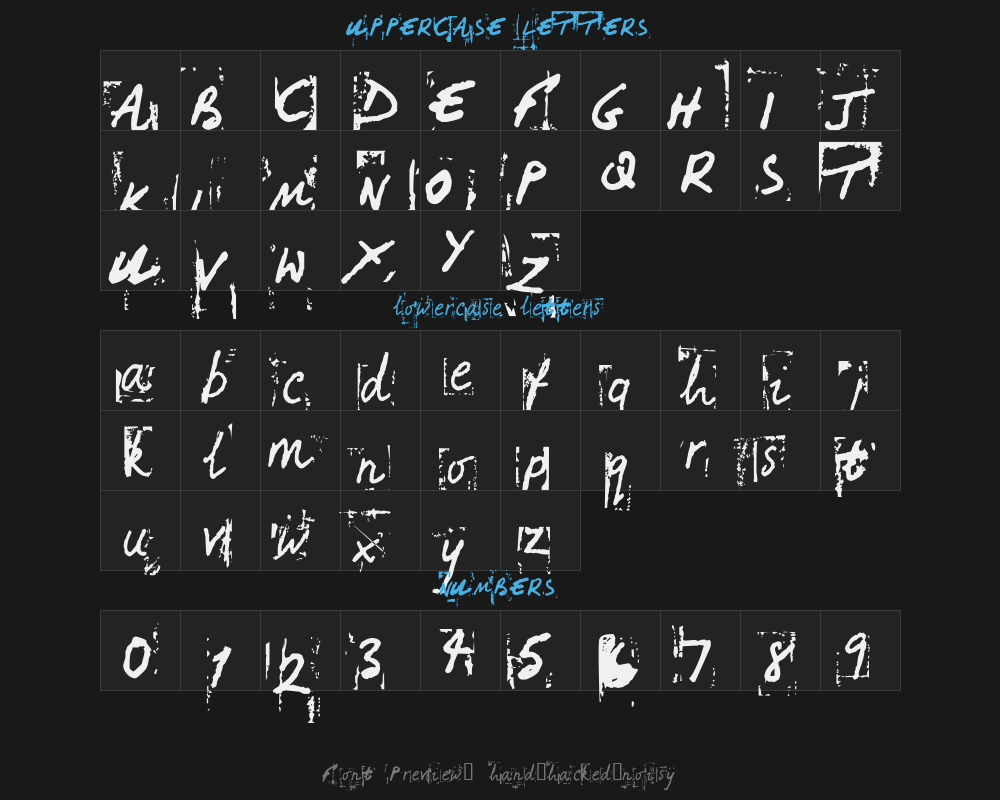 UPPERCASE LETTERS
A B C D E F G H I J
K L M N O P Q R S T
U V W X Y Z
lowercase letters
a b c d e f g h i j
k l m n o p q r s t
u v w x y z
NUMBERS
0 1 2 3 4 5 6 7 8 9
Font Preview▯ hand▯hacked▯noisy